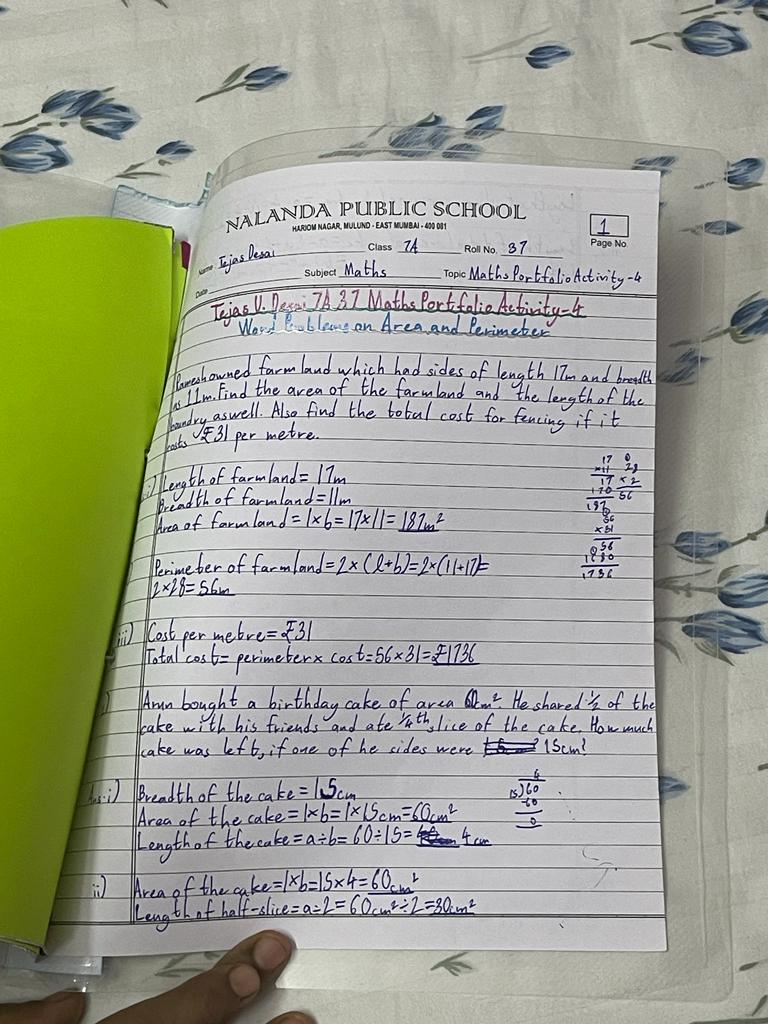 NALANDA PUBLIC SCHOOL
HARIOM NAGAR, MULUND - EAST MUMBAI - 400 081
1
Page No.
Name Tejas Desai Class 7A Roll No. 37
Date Subject Maths Topic Maths Portfolio Activity-4
Tejas V. Desai 7A 37 Maths Portfolio Activity-4
Word Problems on Area and Perimeter
Ramesh owned farmland which had sides of length 17m and breadth
as 11m. Find the area of the farmland and the length of the
boundry aswell. Also find the total cost for fencing if it
costs ₹31 per metre.
i) Length of farmland = 17m
Breadth of farmland = 11m
Area of farmland = l×b = 17×11 = 187m²
Perimeter of farmland = 2×(l+b) = 2×(11+17)=
2×28 = 56m
iii) Cost per metre = ₹31
Total cost = perimeter × cost = 56×31 = ₹1736
17
×11
17
170
187
28
×2
56
56
×31
56
1680
1736
) Arun bought a birthday cake of area 60cm². He shared ½ of the
cake with his friends and ate ¼th slice of the cake. How much
cake was left, if one of he sides were 15cm?
Ans-i) Breadth of the cake = 15cm
Area of the cake = l×b = l×15cm = 60cm²
Length of the cake = a÷b = 60÷15 = 4cm
4
15)60
-60
0
ii) Area of the cake = l×b = 15×4 = 60cm²
Length of half-slice = a÷2 = 60cm²÷2 = 30cm²